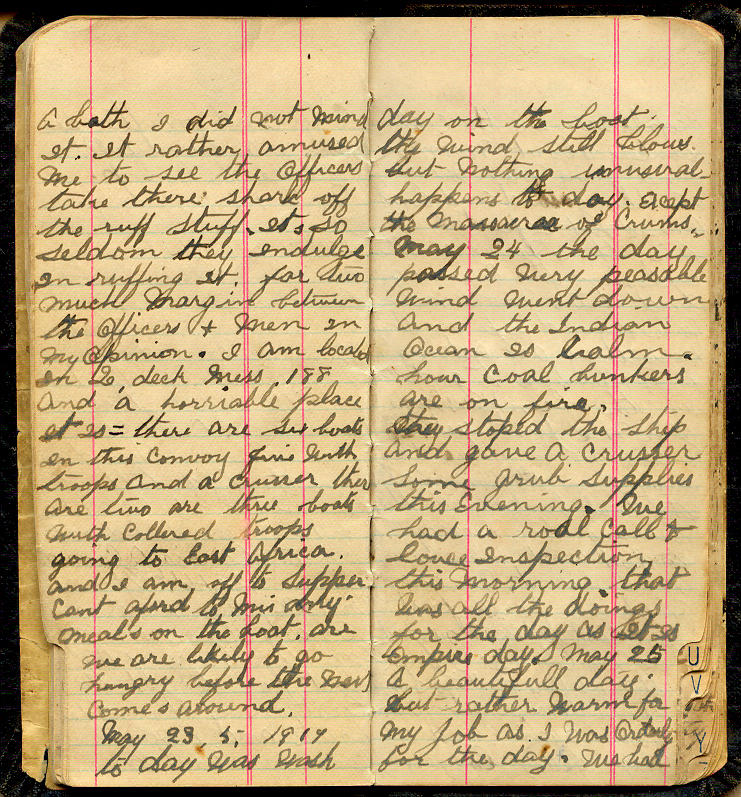 A bath I did not mind
it. It rather amused
Me to see the Officers
take there share off
the ruff stuff. its so
seldom they indulge
in ruffing it. far two
much Margin between
the Officers & Men in
My Opinion. I am located
in 2 deck Mess 188
And a horriable place
it is = there are six boats
in this Convoy five with
troops And a Cusser ther
are two are three boats
with Collered troops
going to East Africa.
and I am off to Supper
Cant aford to Mis Any
Meals on the boat. are
we are likely to go
hungry before the Next
Comes around.
May 23. 5. 1917
to day was Wash
day on the boat.
the Wind still blows.
but Nothing unusual
happens to day. except
the Massacree of Crums.
May 24 the day
passed Very peasable
Wind Went down
And the Indian
Ocean is Calm.
hour Coal bunkers
are on fire.
they stoped the ship
and gave A Crusser
Some grub Supplies
this Evening. Ive
had a roal Call &
Inspection
this Morning that
was all the doings
for the day as it is
Empire day. May 25
A beautifull day.
but rather Warm for
My Job as I was Orderly
for the day. We had
U
V
Y